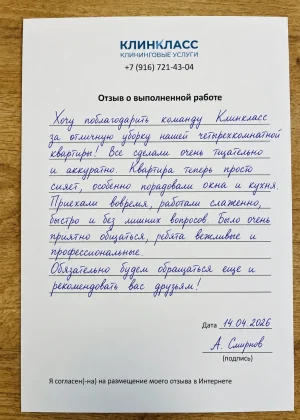 КЛИНКЛАСС
КЛИНИНГОВЫЕ УСЛУГИ
+7 (916) 721-43-04
Отзыв о выполненной работе
Хочу поблагодарить команду Клинкласс
за отличную уборку нашей четырехкомнатной
квартиры! Все сделали очень тщательно
и аккуратно. Квартира теперь просто
сияет, особенно порадовали окна и кухня.
Приехали вовремя, работали слаженно,
быстро и без лишних вопросов. Было очень
приятно общаться, ребята вежливые и
профессиональные.
Обязательно будем обращаться еще и
рекомендовать вас друзьям!
Дата 14.04.2026
А. Смирнов
(подпись)
Я согласен(-на) на размещение моего отзыва в Интернете